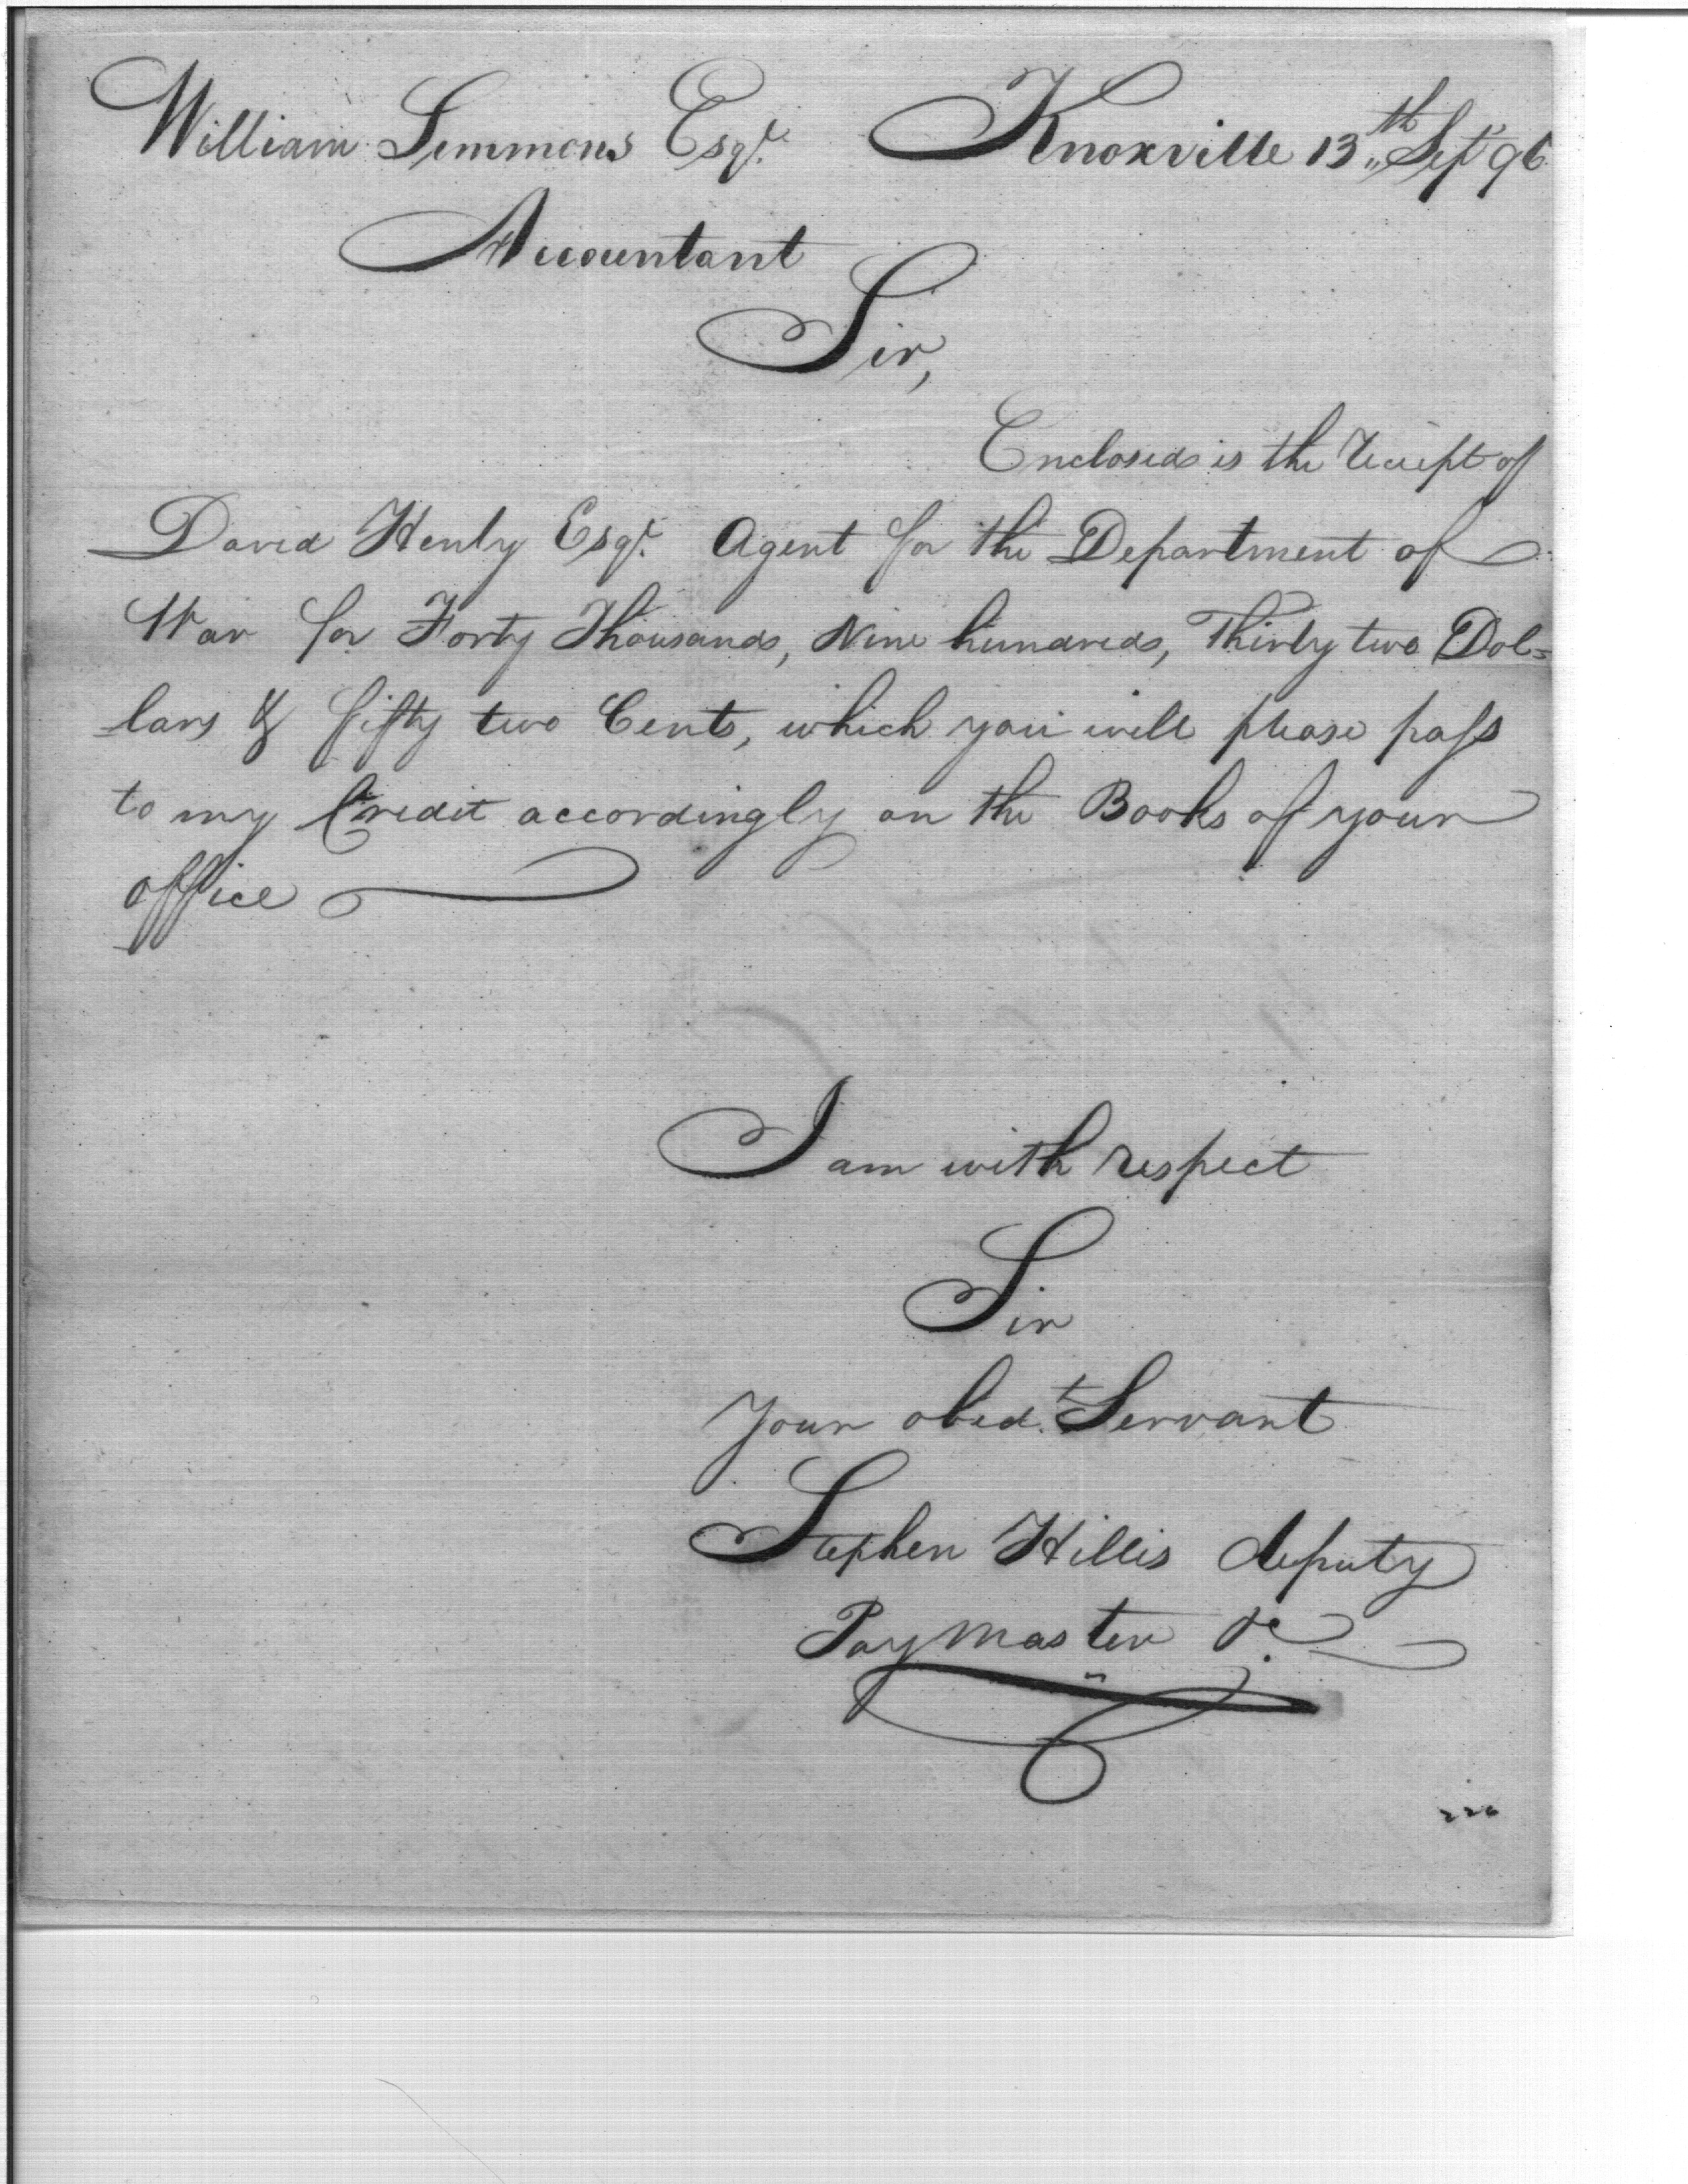 William Simmons Esqr. Knoxville 13th Sept 96
Accountant
Sir,
Enclosed is the Receipt of
David Henly Esqr. Agent for the Department of
War for Forty Thousand, Nine hundred, Thirty two Dol=
lars & fifty two Cents, which you will please pass
to my Credit accordingly on the Books of your
office
I am with respect
Sir
Your obedt. Servant
Stephen Hillis deputy
Paymaster &c.